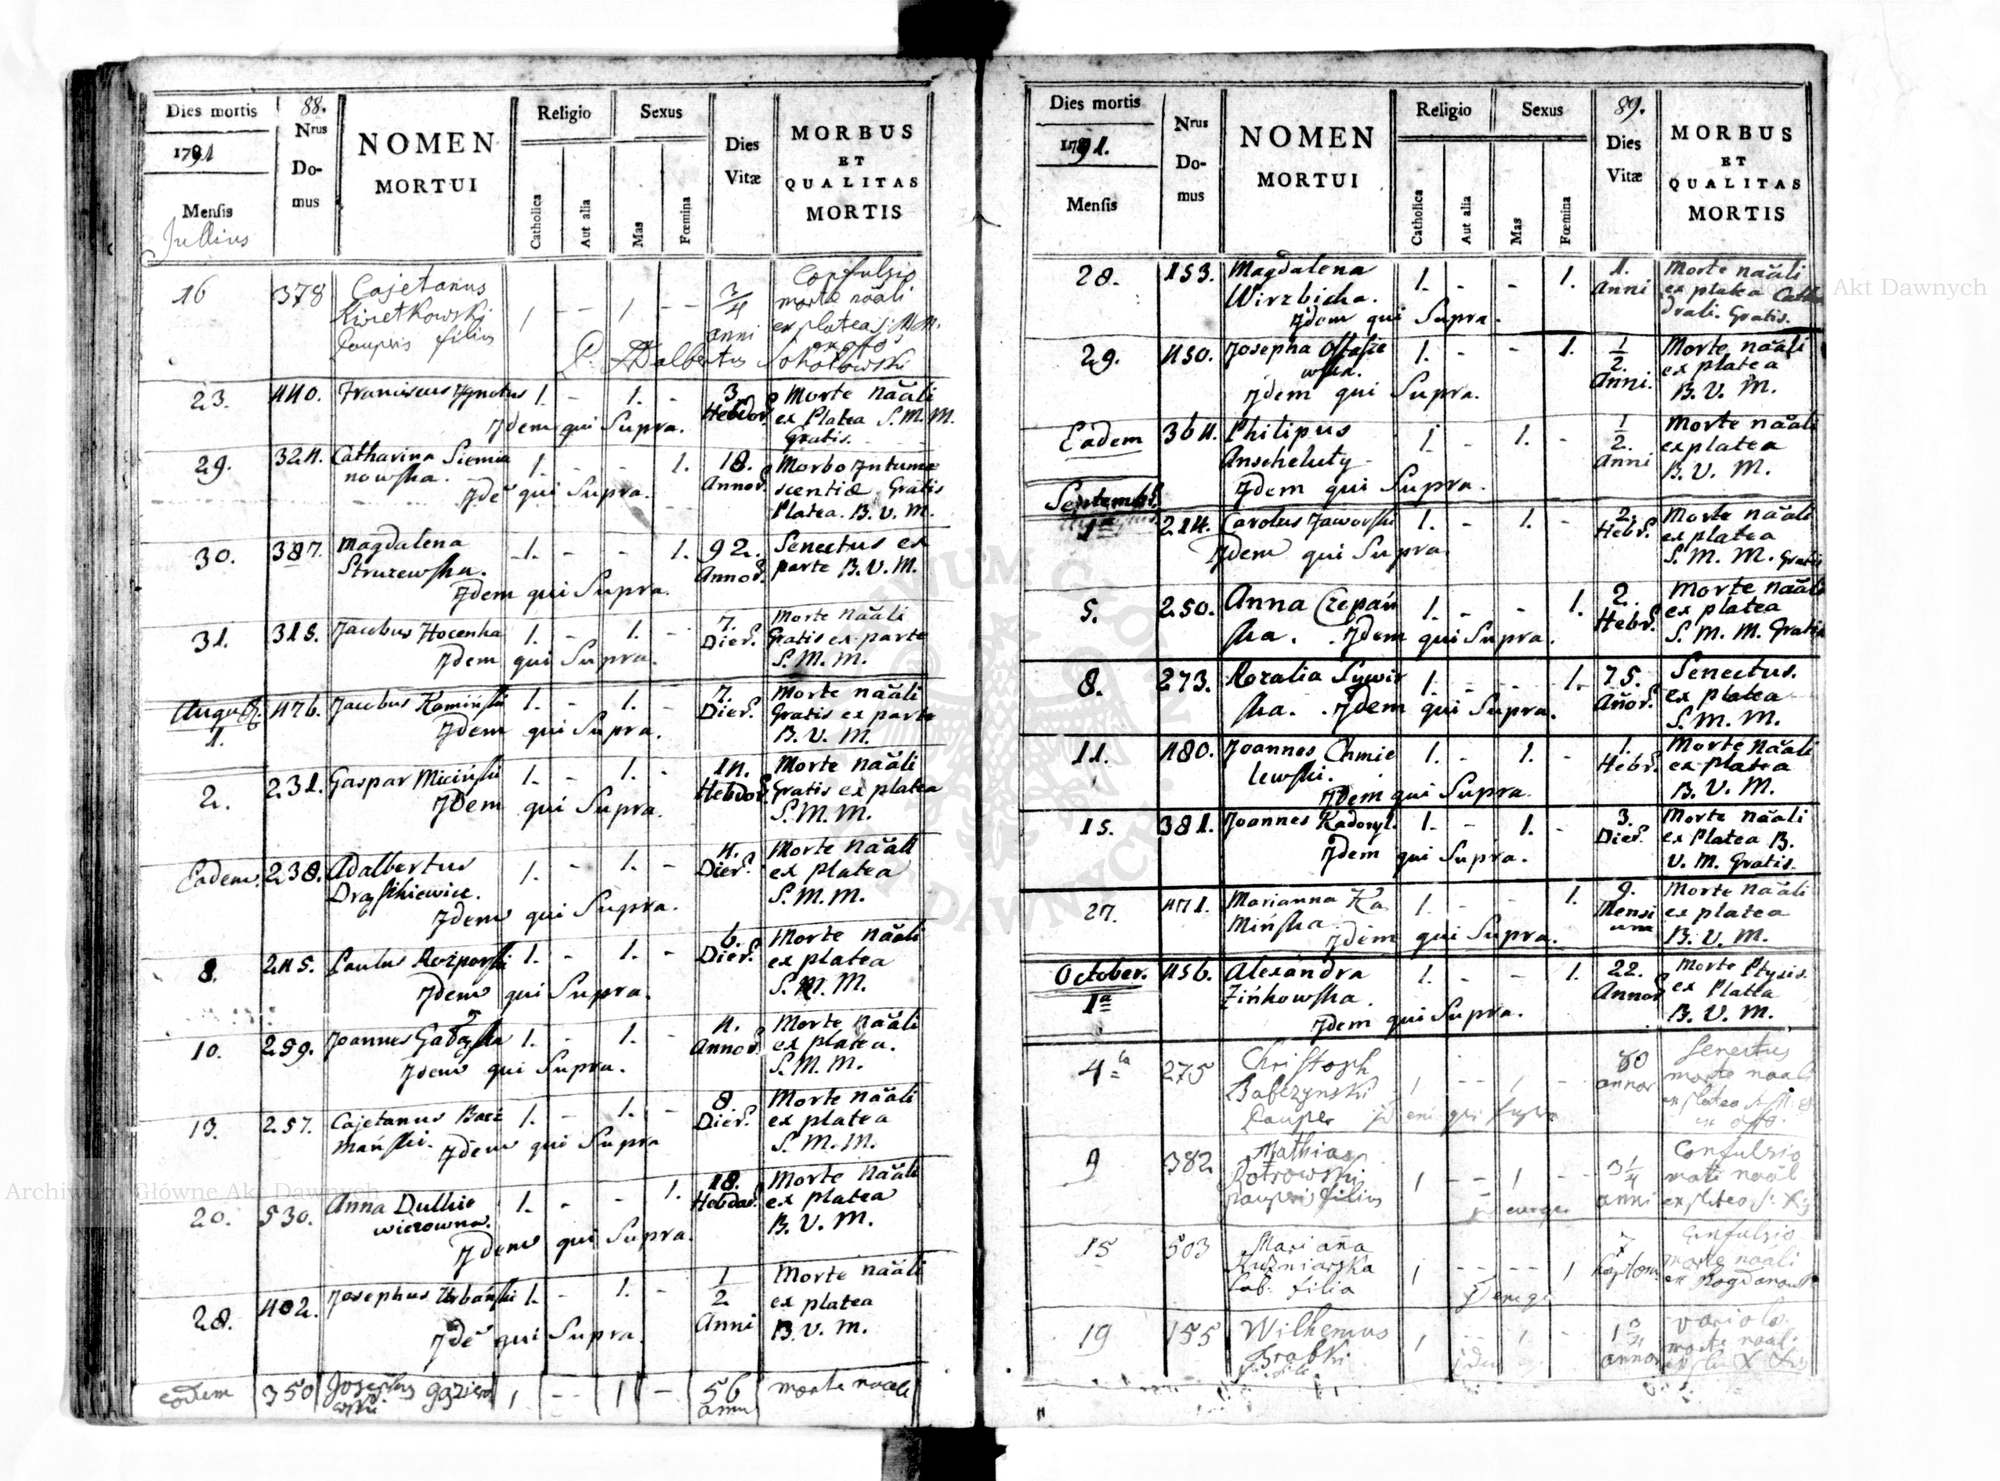 Dies mortis
1791
Mensis
Jullius
88.
Nrus
Do-
mus
NOMEN
MORTUI
Religio
Catholica
Aut alia
Sexus
Mas
Fœmina
Dies
Vitæ
MORBUS
ET
QUALITAS
MORTIS
16 378 Cajetanus 1 - - 1 - - 3/4 anni
Kwietkowski
pauperis filius
morte nãali
ex platea S. M. M.
P. Adalbertus Sokołowski
23. 440. Franciscus Ignotus 1. - 1. - 3. Hebdor. Morte nãali
Idem qui Supra. ex Platea S. M. M.
Gratis.
29. 324. Catharina Siemia 1. - - 1. 18. Annor. Morbo Intume
nowska. scentiæ Gratis
Idẽ qui Supra. Platea. B. V. M.
30. 387. Magdalena 1. - - 1. 92. Annor. Senectus ex
Struzewska. parte B. V. M.
Idem qui Supra.
31. 315. Jacobus Hocenka 1. - 1. - 7. Dier. Morte nãali
Idem qui Supra. Gratis ex parte
S. M. M.
August:
1. 476. Jacobus Kamiński 1. - 1. - 7. Dier. Morte nãali
Idem qui Supra. Gratis ex parte
B. V. M.
2. 231. Gaspar Miciński 1. - 1. - 14. Hebdor. Morte nãali
Idem qui Supra. Gratis ex platea
S. M. M.
Eadem. 238. Adalbertus 1. - 1. - 4. Dier. Morte nãali
ex platea
Idem qui Supra. S. M. M.
8. 245. Paulus 1. - 1. - 6. Dier. Morte nãali
Idem qui Supra. ex platea
S. M. M.
10. 259. Joannes 1. - 1. - 4. Annor. Morte nãali
Idem qui Supra. ex platea.
S. M. M.
13. 257. Cajetanus Bacz 1. - 1. - 8 Dier. Morte nãali
mański. Idem qui Supra ex platea
S. M. M.
20. 530. Anna Dulkie 1. - - 1. 18. Hebdor. Morte nãali
wiczowna. ex platea
Idem qui Supra. B. V. M.
28. 402. Josephus Urbański 1. - 1. - 1/2 Anni Morte nãali
ex platea
Idẽ qui Supra. B. V. M.
eodem 350 Josephus 1 - - 1 - 56 morte nãali
Dies mortis
1791.
Mensis
Nrus
Do-
mus
NOMEN
MORTUI
Religio
Catholica
Aut alia
Sexus
Mas
Fœmina
89.
Dies
Vitæ
MORBUS
ET
QUALITAS
MORTIS
28. 153. Magdalena 1. - - 1. 1. Anni Morte nãali
Wirzbicka. ex platea Cathe
Idem qui Supra. drali. Gratis.
29. 450. Josepha Ostasze 1. - - 1. 1/2. Anni. Morte nãali
wska. ex platea
Idem qui Supra. B. V. M.
Eadem 364. Philipus 1 - 1. - 1/2. Anni Morte nãali
Anscheluty ex platea
Idem qui Supra. B. V. M.
Septembr.
1ª 214. Carolus Jaworski 1. - 1. - 2. Hebr. Morte nãali
Idem qui Supra. ex platea
S. M. M. Gratis
5. 250. Anna Czepań 1. - - 1. 2. Hebr. Morte nãali
ska. Idem qui Supra. ex platea
S. M. M. Gratis
8. 273. Rozalia Sywir 1. - - 1. 75. Añor. Senectus.
ska. Idem qui Supra. ex platea
S. M. M.
11. 480. Joannes Chmie 1. - 1. - 1. Hebr. Morte nãali
lewski. ex platea
Idem qui Supra. B. V. M.
15. 381. Joannes 1. - 1. - 3. Dier. Morte nãali
Idem qui Supra. ex Platea B.
V. M. Gratis.
27. 471. Marianna Ka 1. - - 1. 9. Mensi Morte nãali
Mińska ex platea
Idem qui Supra. B. V. M.
October.
1ª 456. Alexandra 1. - - 1. 22. Annor Morte Ptysis.
Zińkowska. ex Platea
Idem qui Supra. B. V. M.
4 275 Christoph 1 - - 1 - 80 annor Senectus
Babczynski morte nãali
Pauper Idem qui supra
9 382 Mathias 1 - - 1 - 3 1/4 anni Confulsio
Potrowski
pauperis filius
15 503 Mariaña 1 - - - - 1 7 Confulsio
Kuzniarska morte nãali
Lab. filia
19 155 Wilhemus 1 - - 1 - annor variola
morte nãali
Archiwum Główne Akt Dawnych
Główne Akt Dawnych